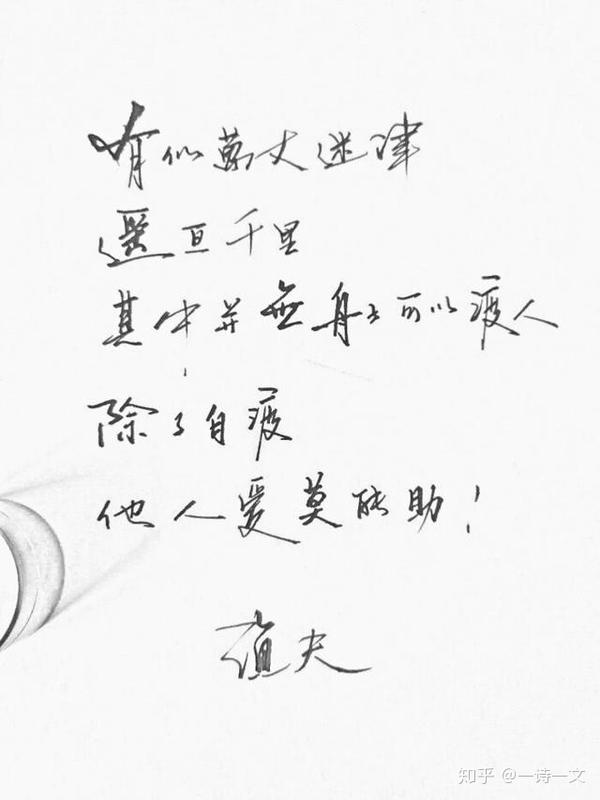 有似萬丈迷津
亘千里
其中并無舟子可以渡人
除了自渡
他人爱莫能助！
夫
知乎 @一诗一文